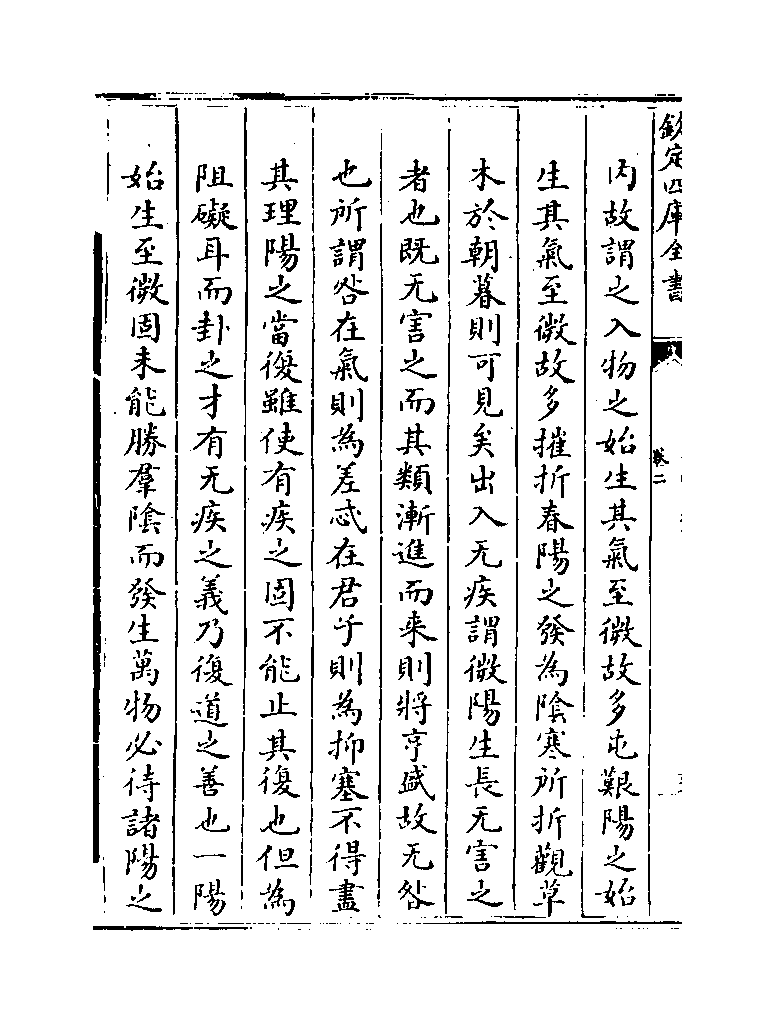 欽定四庫全書
卷二
内故謂之入物之始生其氣至微故多屯艱陽之始
生其氣至微故多摧折春陽之發為陰寒所折觀草
木於朝暮則可見矣出入无疾謂微陽生長无害之
者也既无害之而其類漸進而来則將亨盛故无咎
也所謂咎在氣則為差忒在君子則為抑塞不得盡
其理陽之當復雖使有疾之固不能止其復也但為
阻礙耳而卦之才有无疾之義乃復道之善也一陽
始生至微固未能勝羣陰而發生萬物必待諸陽之